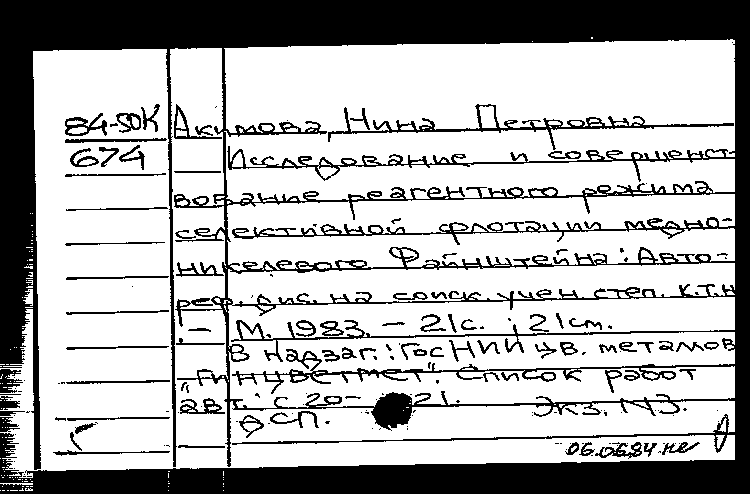 84-50К Акимова, Нина Петровна
674 Исследование и совершенст-
вование реагентного режима
селективной флотации медно-
никелевого Файнштейна: Авто-
реф. дис. на соиск. учен. степ. к.т.н
.- М. 1983. - 21с. ; 21см.
В надзаг.: ГосНИИ цв. металлов
"Гинцветмет". Список работ
авт.: с 20-21.
ДСП. Экз. №3.
06.06.84